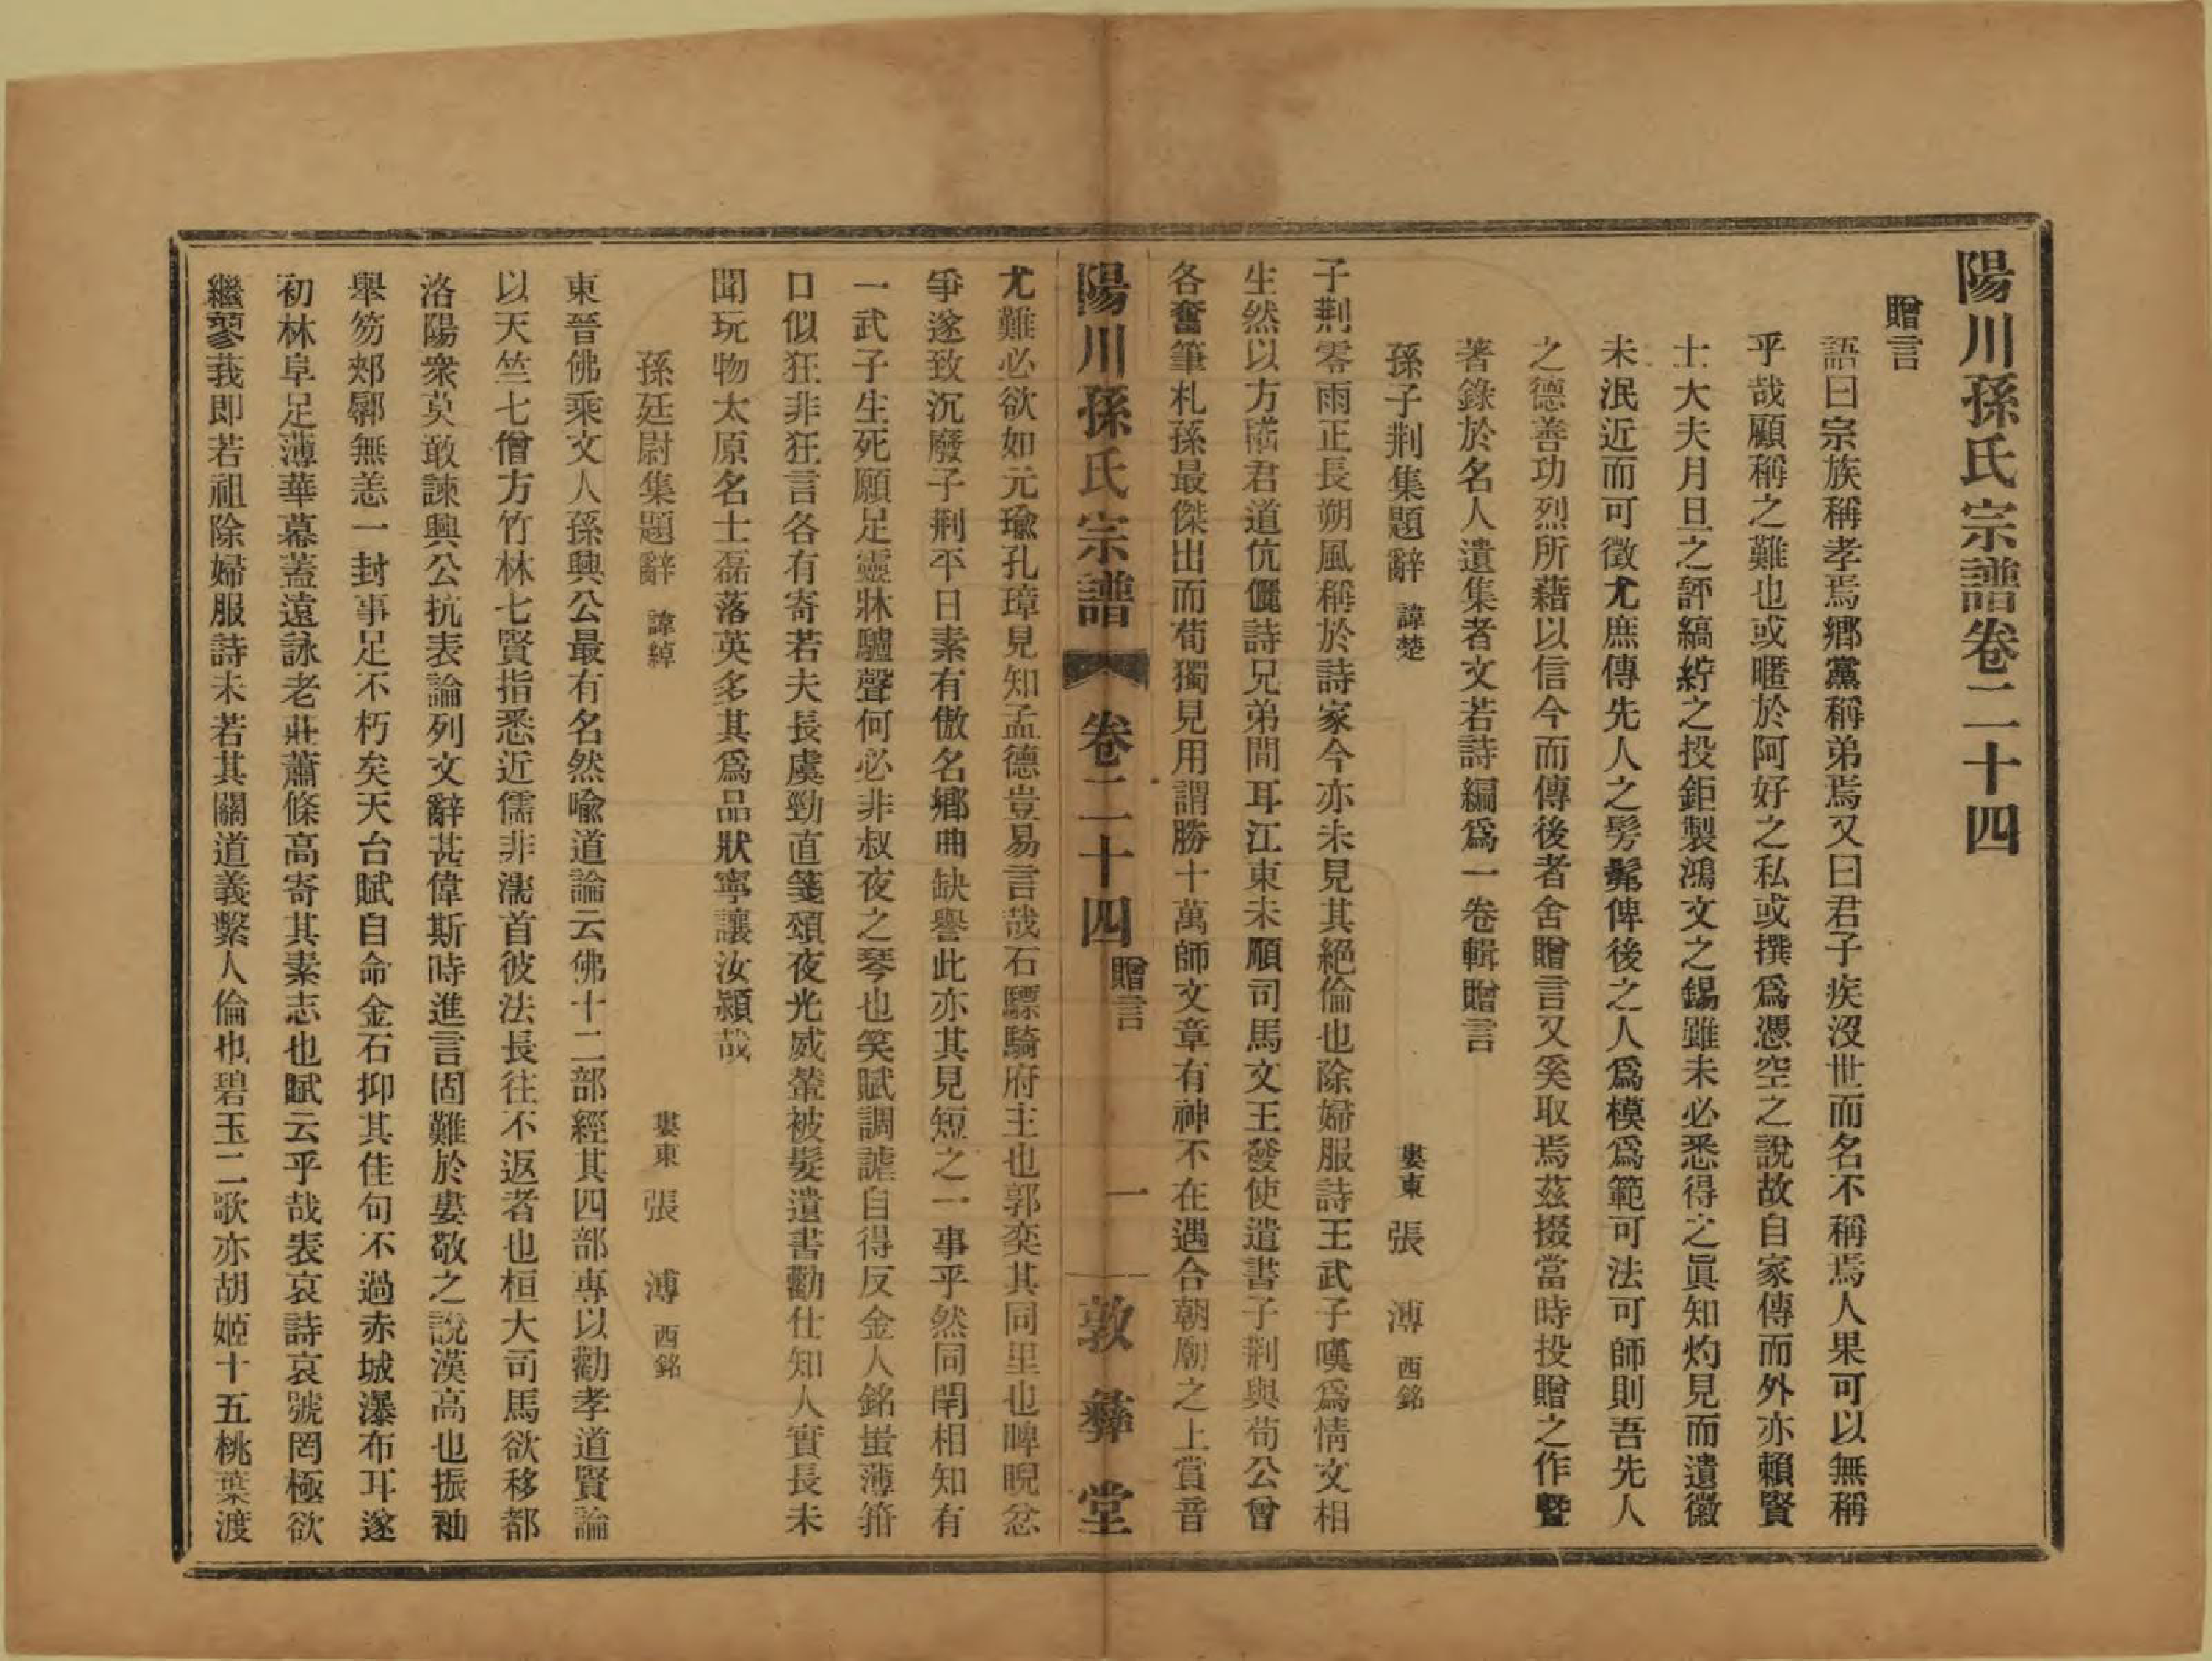 陽川孫氏宗譜卷二十四
贈言
語曰宗族稱孝焉鄉黨稱弟焉又曰君子疾沒世而名不稱焉人果可以無稱
乎哉顧稱之難也或暱於阿好之私或撰爲憑空之說故自家傳而外亦賴賢
士大夫月旦之評縞紵之投鉅製鴻文之錫雖未必悉得之眞知灼見而遺徽
未泯近而可徵尤庶傳先人之髣髴俾後之人爲模爲範可法可師則吾先人
之德善功烈所藉以信今而傳後者舍贈言又奚取焉茲掇當時投贈之作曁
著錄於名人遺集者文若詩編爲一卷輯贈言
孫子荆集題辭 諱楚 婁東 張 溥 西銘
子荆零雨正長朔風稱於詩家今亦未見其絕倫也除婦服詩王武子嘆爲情文相
生然以方嵇君道伉儷詩兄弟間耳江東未順司馬文王發使遣書子荆與荀公曾
各奮筆札孫最傑出而荀獨見用謂勝十萬師文章有神不在遇合朝廟之上賞音
陽川孫氏宗譜 卷二十四 贈言 一 敦彝堂
尤難必欲如元瑜孔璋見知孟德豈易言哉石驃騎府主也郭奕其同里也睥睨忿
爭遂致沉廢子荆平日素有傲名鄉曲缺譽此亦其見短之一事乎然同閈相知有
一武子生死願足靈牀驢聲何必非叔夜之琴也笑賦調謔自得反金人銘蚩薄箝
口似狂非狂言各有寄若夫長虞勁直箋頌夜光威輦被髮遺書勸仕知人實長未
聞玩物太原名士磊落英多其爲品狀寧讓汝潁哉
孫廷尉集題辭 諱綽 婁東 張 溥 西銘
東晉佛乘文人孫興公最有名然喻道論云佛十二部經其四部專以勸孝道賢論
以天竺七僧方竹林七賢指悉近儒非濡首彼法長往不返者也桓大司馬欲移都
洛陽衆莫敢諫興公抗表論列文辭甚偉斯時進言固難於婁敬之說漢高也振袖
舉笏郟鄏無恙一封事足不朽矣天台賦自命金石抑其佳句不過赤城瀑布耳遂
初林阜足薄華幕蓋遠詠老莊蕭條高寄其素志也賦云乎哉表哀詩哀號罔極欲
繼蓼莪即若祖除婦服詩未若其關道義繫人倫也碧玉二歌亦胡姬十五桃葉渡